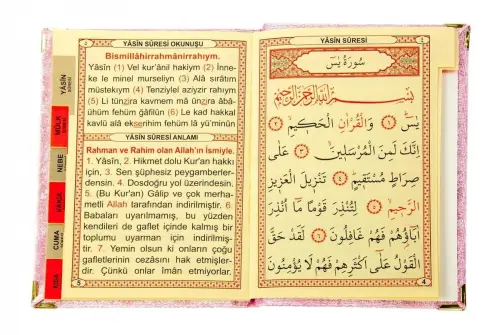 YÂSÎN SÛRESİ OKUNUŞU
Bismillâhirrahmânirrahıym.
Yâsîn (1) Vel kur'ânil hakiym (2) İnne-
ke le minel murseliyn (3) Alâ sırâtım
müstekıym (4) Tenziylel aziyzir rahıym
(5) Li tünzira kavmem mâ ünzira âbâ-
ühüm fehüm ğâfilûn (6) Le kad hakkal
kavlü alâ ekserihim fehüm lâ yü'minûn
YÂSÎN SÛRESİ ANLAMI
Rahman ve Rahim olan Allah'ın İsmiyle.
1. Yâsîn, 2. Hikmet dolu Kur'an hakkı
için, 3. Sen şüphesiz peygamberler-
densin. 4. Dosdoğru yol üzerindesin.
5. (Bu Kur'an) Gâlip ve çok merha-
metli Allah tarafından indirilmiştir. 6.
Babaları uyarılmamış, bu yüzden
kendileri de gaflet içinde kalmış bir
toplumu uyarman için indirilmiş-
tir. 7. Yemin olsun ki onların çoğu
gafletlerinin cezasını hak etmişler-
dir. Çünkü onlar îman etmiyorlar.
5
YÂSÎN
SÛRESİ
MÜLK
SÛRESİ
NEBE
VAKIA
CUMA
KISA
YÂSÎN SÛRESİ
4
سُورَةُ يٰسٓ
بِسْمِ اللّٰهِ الرَّحْمٰنِ الرَّحِيمِ
يٰسٓ ﴿١﴾ وَالْقُرْاٰنِ الْحَكِيمِ ﴿٢﴾
اِنَّكَ لَمِنَ الْمُرْسَلِينَ ﴿٣﴾ عَلٰى
صِرَاطٍ مُسْتَقِيمٍ ﴿٤﴾ تَنْزِيلَ الْعَزِيزِ
الرَّحِيمِ ﴿٥﴾ لِتُنْذِرَ قَوْمًا مَٓا اُنْذِرَ
اٰبَٓاؤُ۬هُمْ فَهُمْ غَافِلُونَ ﴿٦﴾ لَقَدْ حَقَّ
الْقَوْلُ عَلٰٓى اَكْثَرِهِمْ فَهُمْ لَا يُؤْمِنُونَ
4